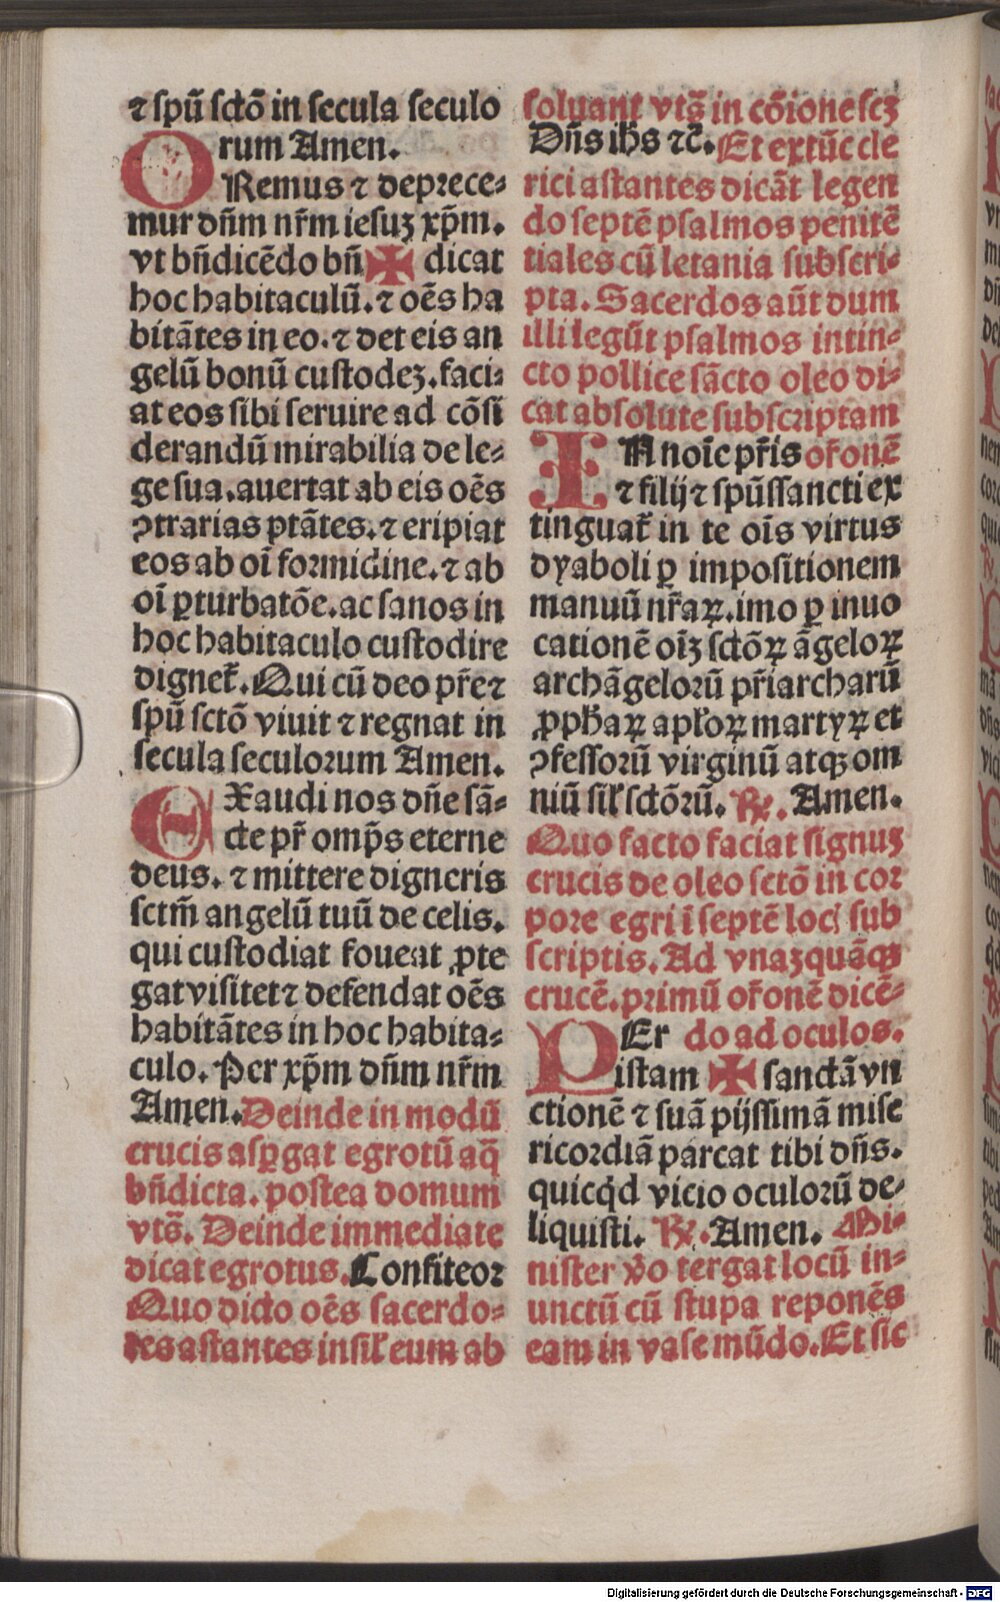 ⁊ spū sctō in secula seculo
rum Amen.
ORemus ⁊ deprece⸗
mur dñm nr̄m iesuʒ xp̄m.
vt bñdicēdo bñ ✠ dicat
hoc habitaculū. ⁊ oēs ha
bitātes in eo. ⁊ det eis an
gelū bonū custodeʒ. faci⸗
at eos sibi seruire ad cōsi
derandū mirabilia de le⸗
ge sua. auertat ab eis oēs
ↄtrarias ptātes. ⁊ eripiat
eos ab oī formidine. ⁊ ab
oī ꝑturbatōe. ac sanos in
hoc habitaculo custodire
dignet̄. Qui cū deo pr̄e ⁊
spū sctō viuit ⁊ regnat in
secula seculorum Amen.
EXaudi nos dñe sā⸗
cte pr̄ omp̄s eterne
deus. ⁊ mittere digneris
sctm̄ angelū tuū de celis.
qui custodiat foueat ꝓte
gat visitet ⁊ defendat oēs
habitātes in hoc habita⸗
culo. Per xp̄m dñm nr̄m
Amen. Deinde in modū
crucis aspꝑgat egrotū aq̄
bñdicta. postea domum
vts̄. Deinde immediate
dicat egrotus. Confiteor
Quo dicto oēs sacerdo⸗
tes astantes insil̄ eum ab
soluant vts̄ in cōione scʒ
Dñs ihs ⁊c̄. Et extūc cle
rici astantes dicāt legen
do septē psalmos penitē
tiales cū letania subscri⸗
pta. Sacerdos aūt dum
illi legūt psalmos intin⸗
cto pollice sācto oleo di⸗
cat absolute subscriptam
IN noīe pr̄is or̄onē
⁊ filij ⁊ spūssancti ex
tinguat̄ in te oīs virtus
dyaboli ꝑ impositionem
manuū nr̄aꝝ. imo ꝑ inuo
cationē oīʒ sctōꝝ āgeloꝝ
archāgelorū pr̄iarcharū
ꝓphaꝝ apl̄oꝝ martyꝝ et
ↄfessorū virginū atqʒ om
niū sil̄ sctōrū. ℟. Amen.
Quo facto faciat signuʒ
crucis de oleo sctō in cor
pore egri ī septē locꝭ sub
scriptis. Ad vnaʒquāqʒ
crucē. primū or̄onē dicē⸗
PEr do ad oculos.
istam ✠ sanctā vn
ctionē ⁊ suā pijssimā mise
ricordiā parcat tibi dñs.
quicq̇d vicio oculorū de⸗
liquisti. ℟. Amen. Mi⸗
nister v̄o tergat locū in⸗
unctū cū stupa reponēs
eam in vase mūdo. Et sic
Digitalisierung gefördert durch die Deutsche Forschungsgemeinschaft - DFG